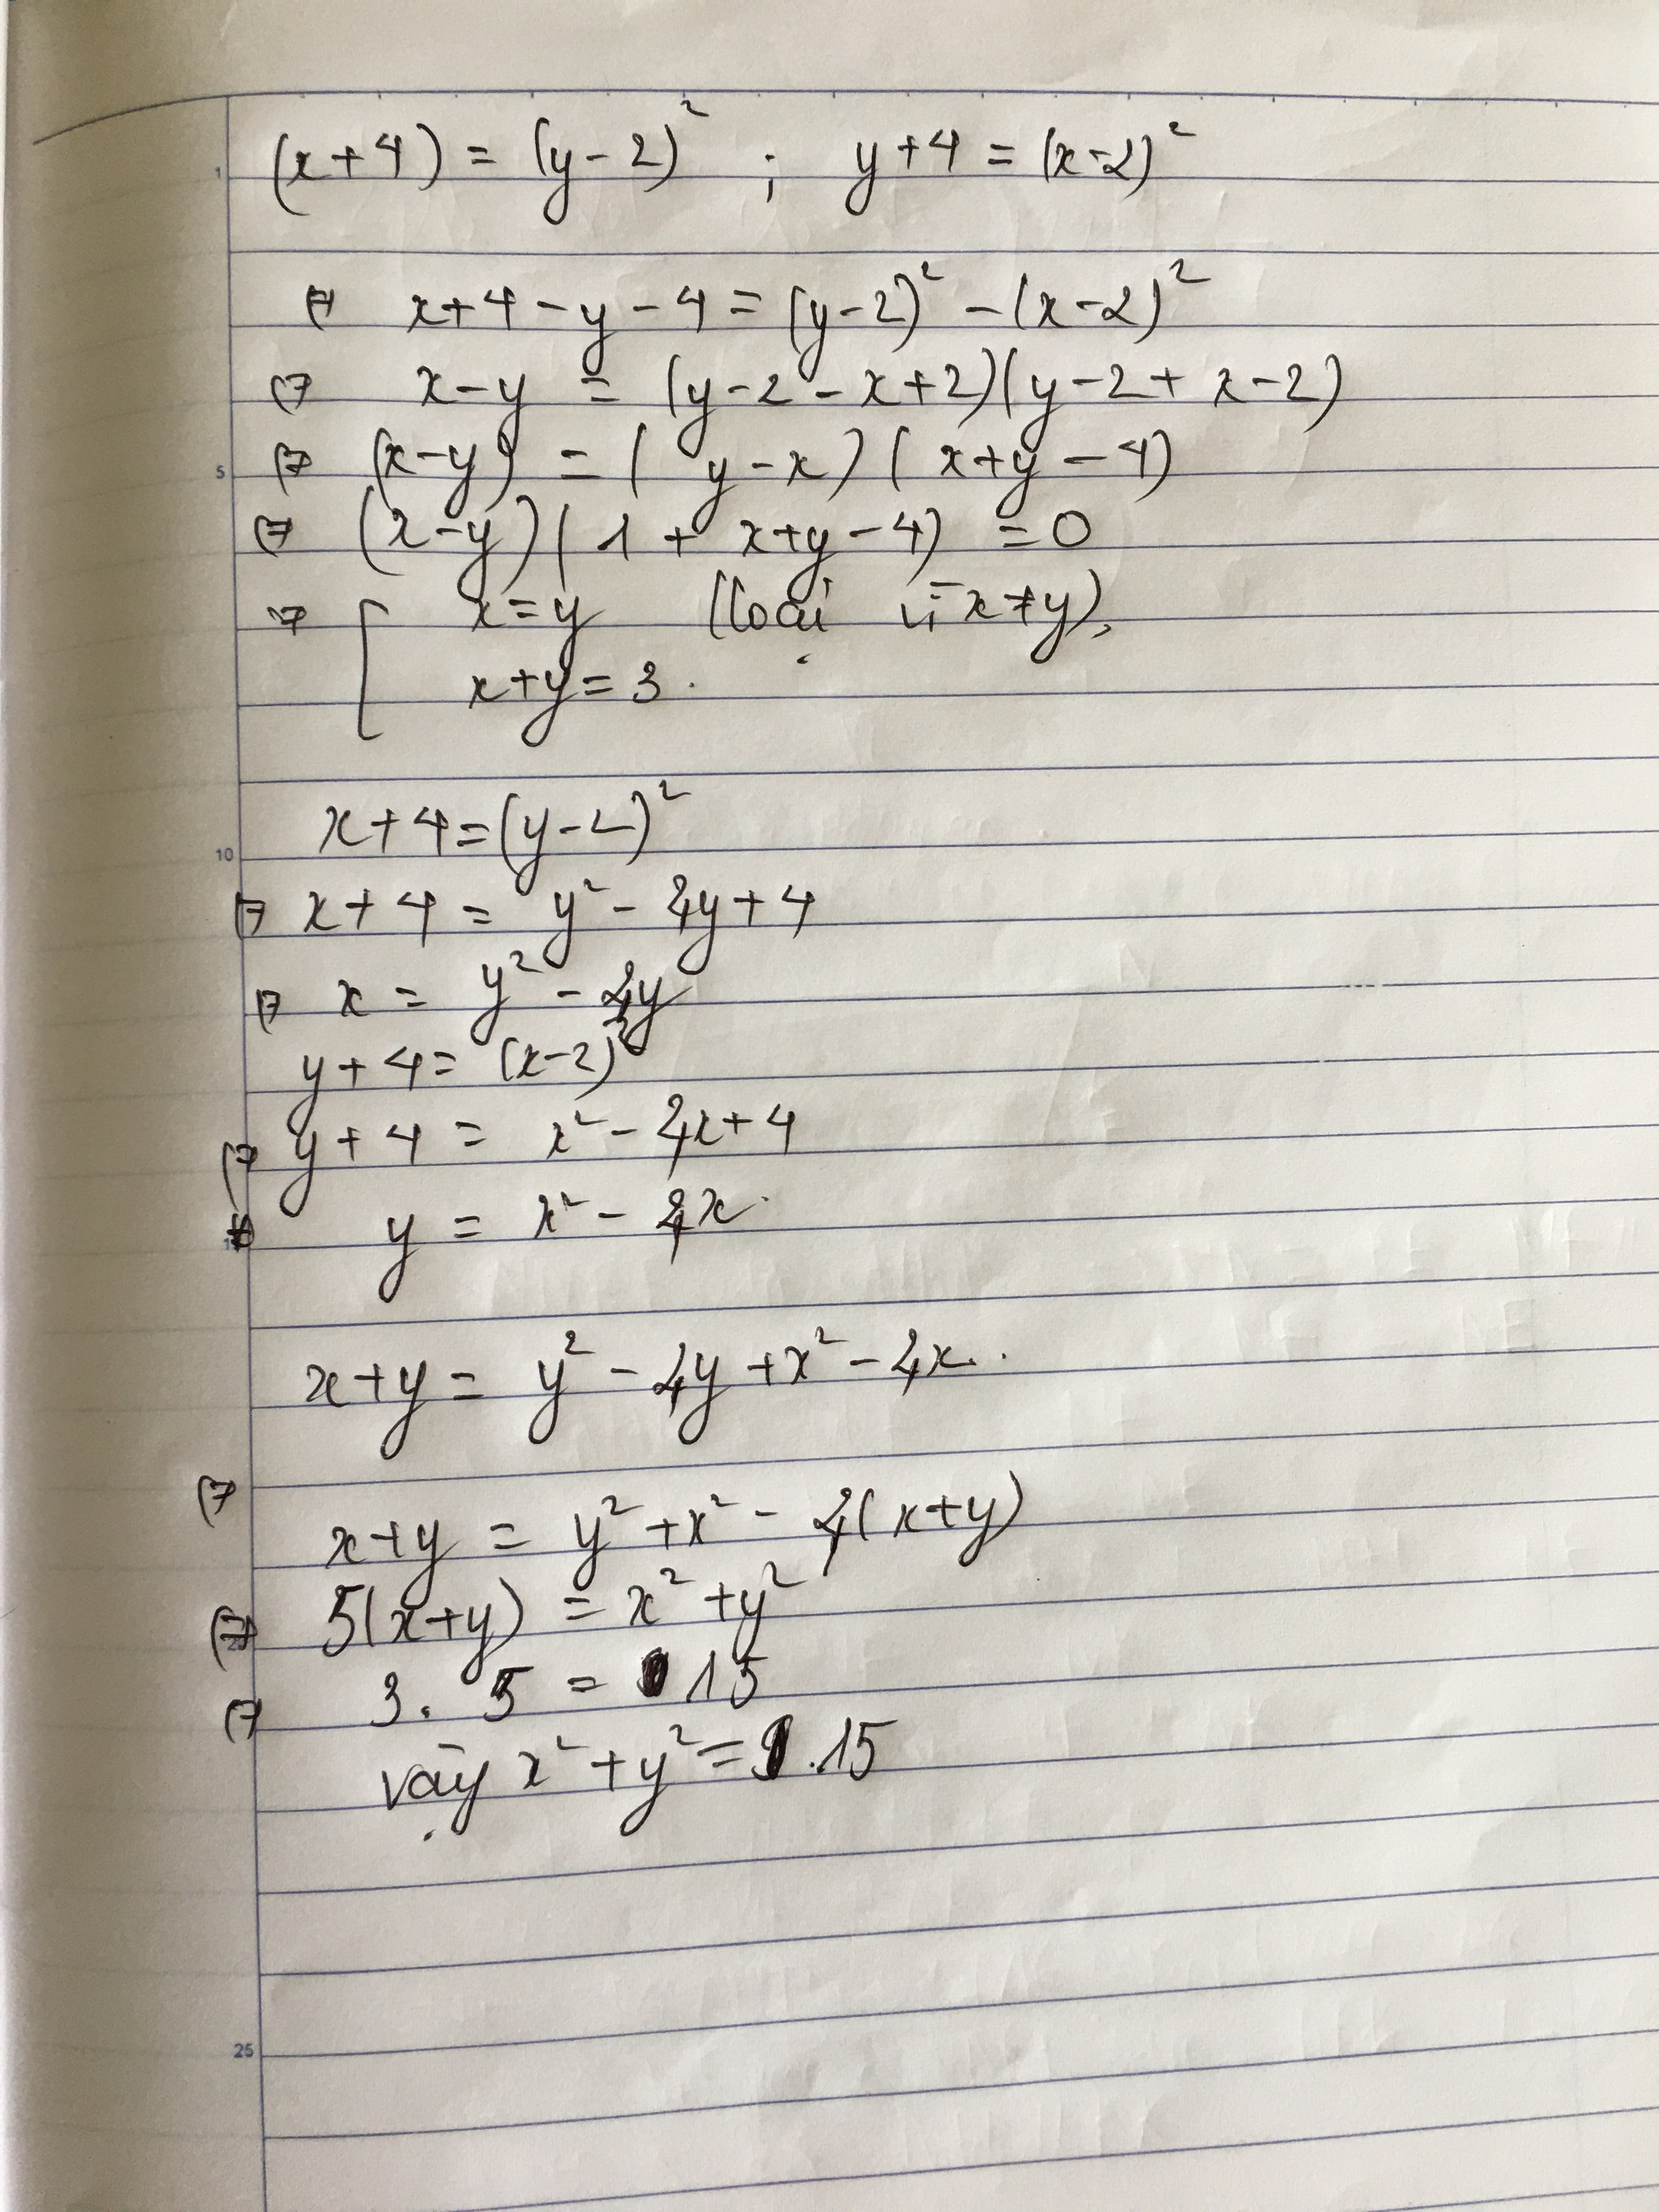 (x+4) = (y-2)² ; y+4 = (x-2)²
⇔ x+4-y-4 = (y-2)² - (x-2)²
⇔ x-y = (y-2-x+2)(y-2+x-2)
⇔ (x-y) = (y-x)(x+y-4)
⇔ (x-y)(1+x+y-4) = 0
⇔ [ x=y (loại vì x≠y),
x+y=3.
x+4=(y-2)²
⇔ x+4 = y²-4y+4
⇔ x = y²-4y
y+4= (x-2)²
⇔ y+4 = x²-4x+4
⇔ y = x²-4x.
x+y = y²-4y+x²-4x.
⇔ x+y = y²+x²-4(x+y)
⇔ 5(x+y) = x²+y²
⇔ 3. 5 = 15
vậy x²+y²= 15
1
5
10
25